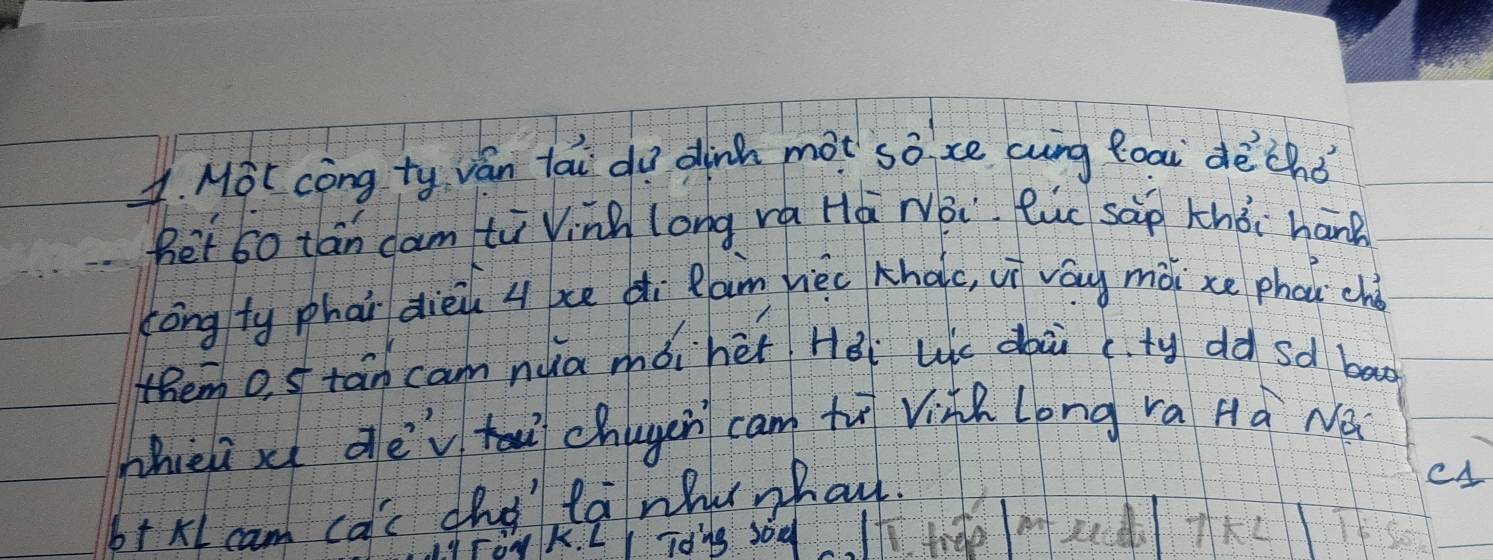 1. Một công ty vận tải dự định một số xe cùng loại để chở
hết 60 tấn cam từ Vĩnh Long ra Hà Nội. Lúc sắp khởi hành
công ty phải điều 4 xe đi làm việc khác, vì vậy mỗi xe phải chở
thêm 0,5 tấn cam nữa mới hết. Hỏi lúc đầu c.ty dd sd bao
nhiêu xe để v. tải chuyển cam từ Vĩnh Long ra Hà Nội
bt KL cam các chở là như nhau.
C1
K.L | Tổng số
| 7KL |